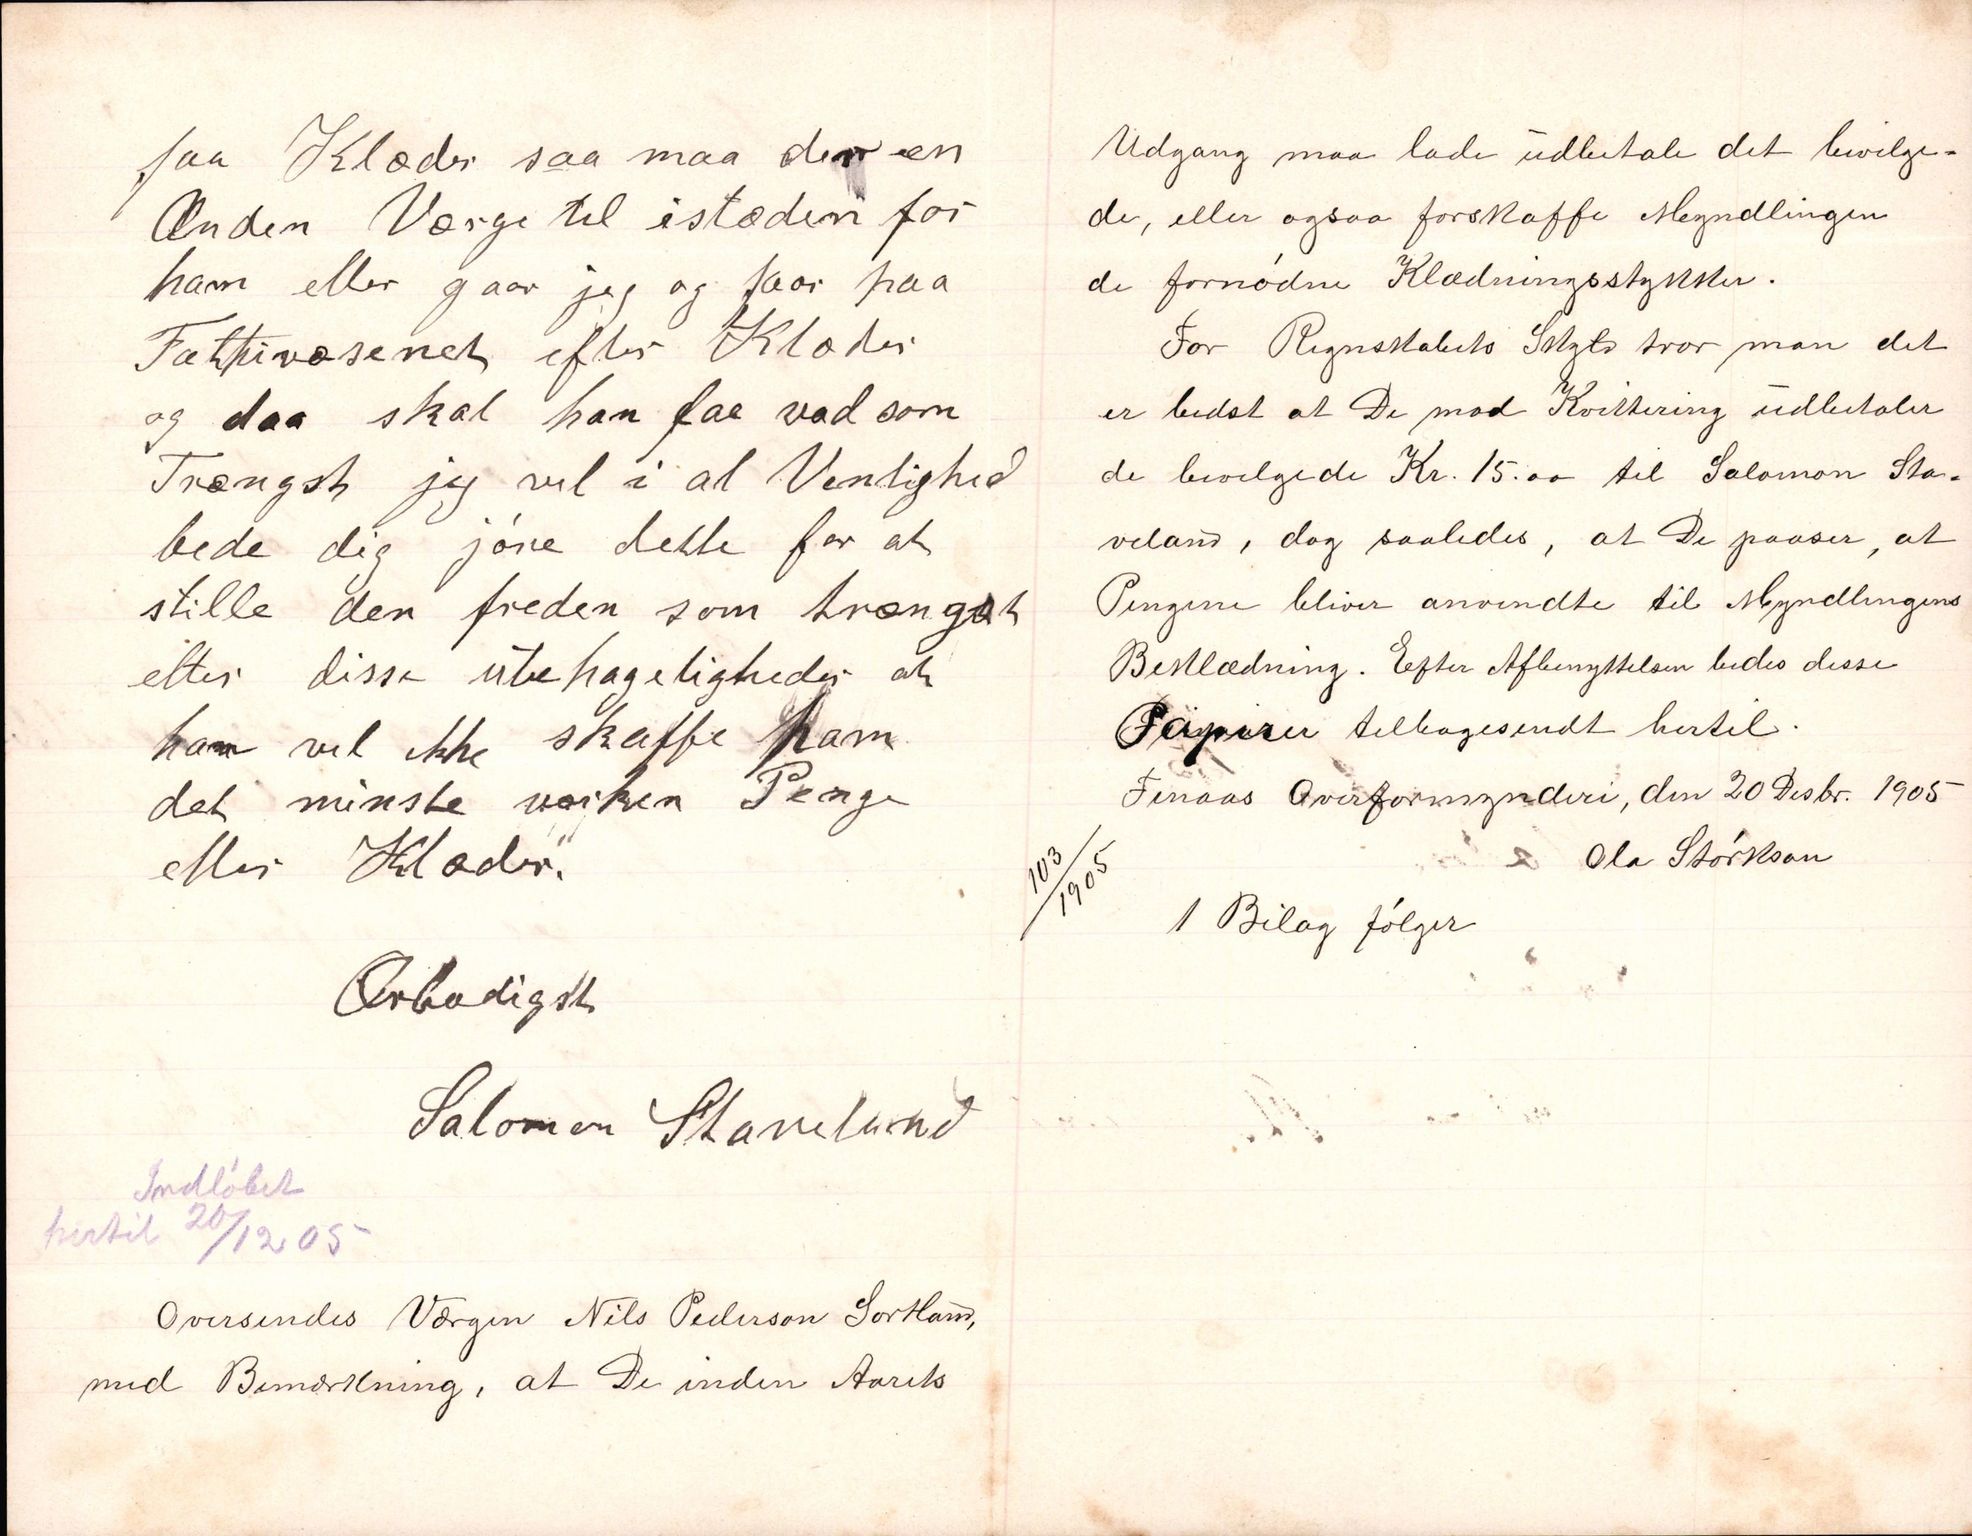 faa Klæder saa maa der en
Anden Værge til istæden for
ham eller gaar jeg og faar paa
Fattivæsenet efter Klæder
og daa skal han fae vad som
Trængst jeg vel i al Venlighed
bede dig jóre dette for at
stille den freden som trængst
etter disse übehageligheder at
han vel ikke skaffe ham
det minste værken Penge
eller Klæder.
Ærbødigst
Salomon Staveland
Indlóbet
hertil 20/12 05
Oversendes Værgen Nils Pederson Sortland,
med Bemærkning, at De inden Aarets
Udgang maa lade üdbetale det bevilge-
de, eller ogsaa forskaffe Myndlingen
de fornódne Klædningsstykker.
For Regnskabets Skyld tror man det
er bedst at De mod Kvittering üdbetaler
de bevilgede Kr. 15.00 til Salomon Sta-
veland, dog saaledes, at De paaser, at
Pengene bliver anvendte til Myndlingens
Beklædning. Efter Afbenyttelsen bedes disse
Papirer tilbagesendt hertil.
Finaas Overformynderi, den 20 Desbr. 1905
Ola Stórkson
103/1905
1 Bilag fólger